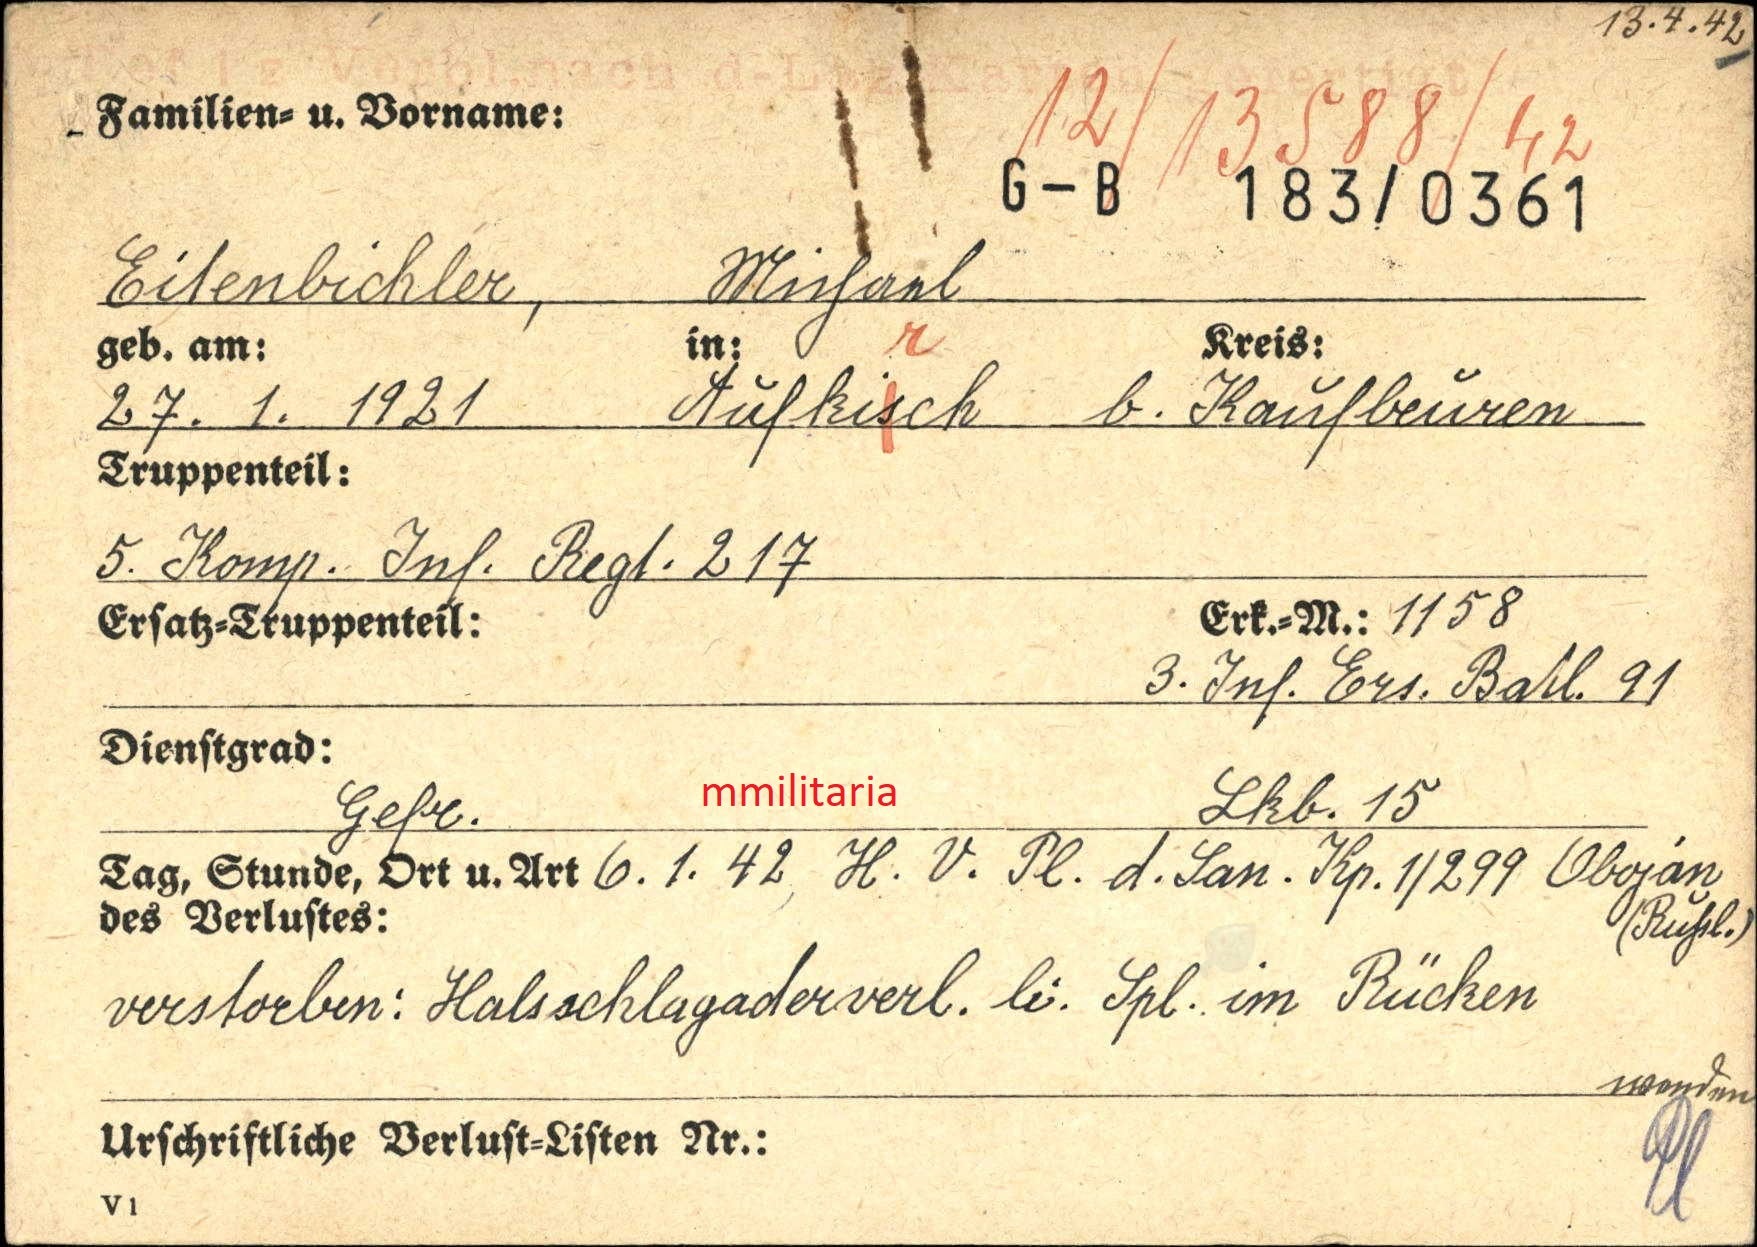 13.4.42
Familien- u. Vorname:
12/13588/42
G-B 183/0361
Eitenbichler, Michael
geb. am: in: Kreis:
r
27. 1. 1921 Aufkisch b. Kaufbeuren
Truppenteil:
5. Komp. Inf. Regt. 217
Ersatz-Truppenteil: Erk.-M.: 1158
3. Inf. Ers. Batl. 91
Dienstgrad:
Gefr. mmilitaria Lkb. 15
Tag, Stunde, Ort u. Art 6. 1. 42, H. V. Pl. d. San. Kp. 1/299 Obojan
des Verlustes: (Rußl.)
verstorben: Halsschlagaderverl. li. Spl. im Rücken
wenden
Urschriftliche Verlust-Listen Nr.:
V 1